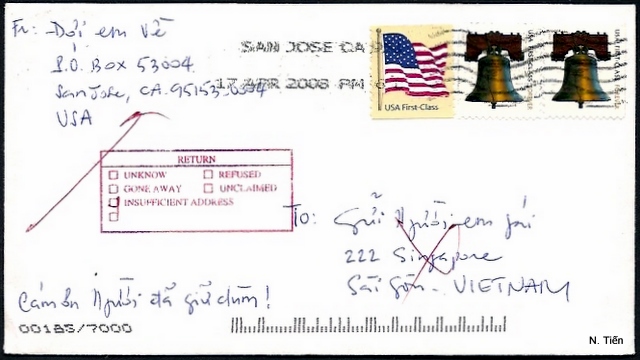 Fr: Đợi em về
P.O. BOX 53004
San Jose, CA. 95153-0004
USA
SAN JOSE CA 9
17 APR 2008 PM
USA First-Class
RETURN
UNKNOW
REFUSED
GONE AWAY
UNCLAIMED
INSUFFICIENT ADDRESS
To: Gửi Người em gái
222 Singapore
Sài Gòn - VIETNAM
Cám ơn Người đã giữ dùm!
00185/7000
N. Tiến